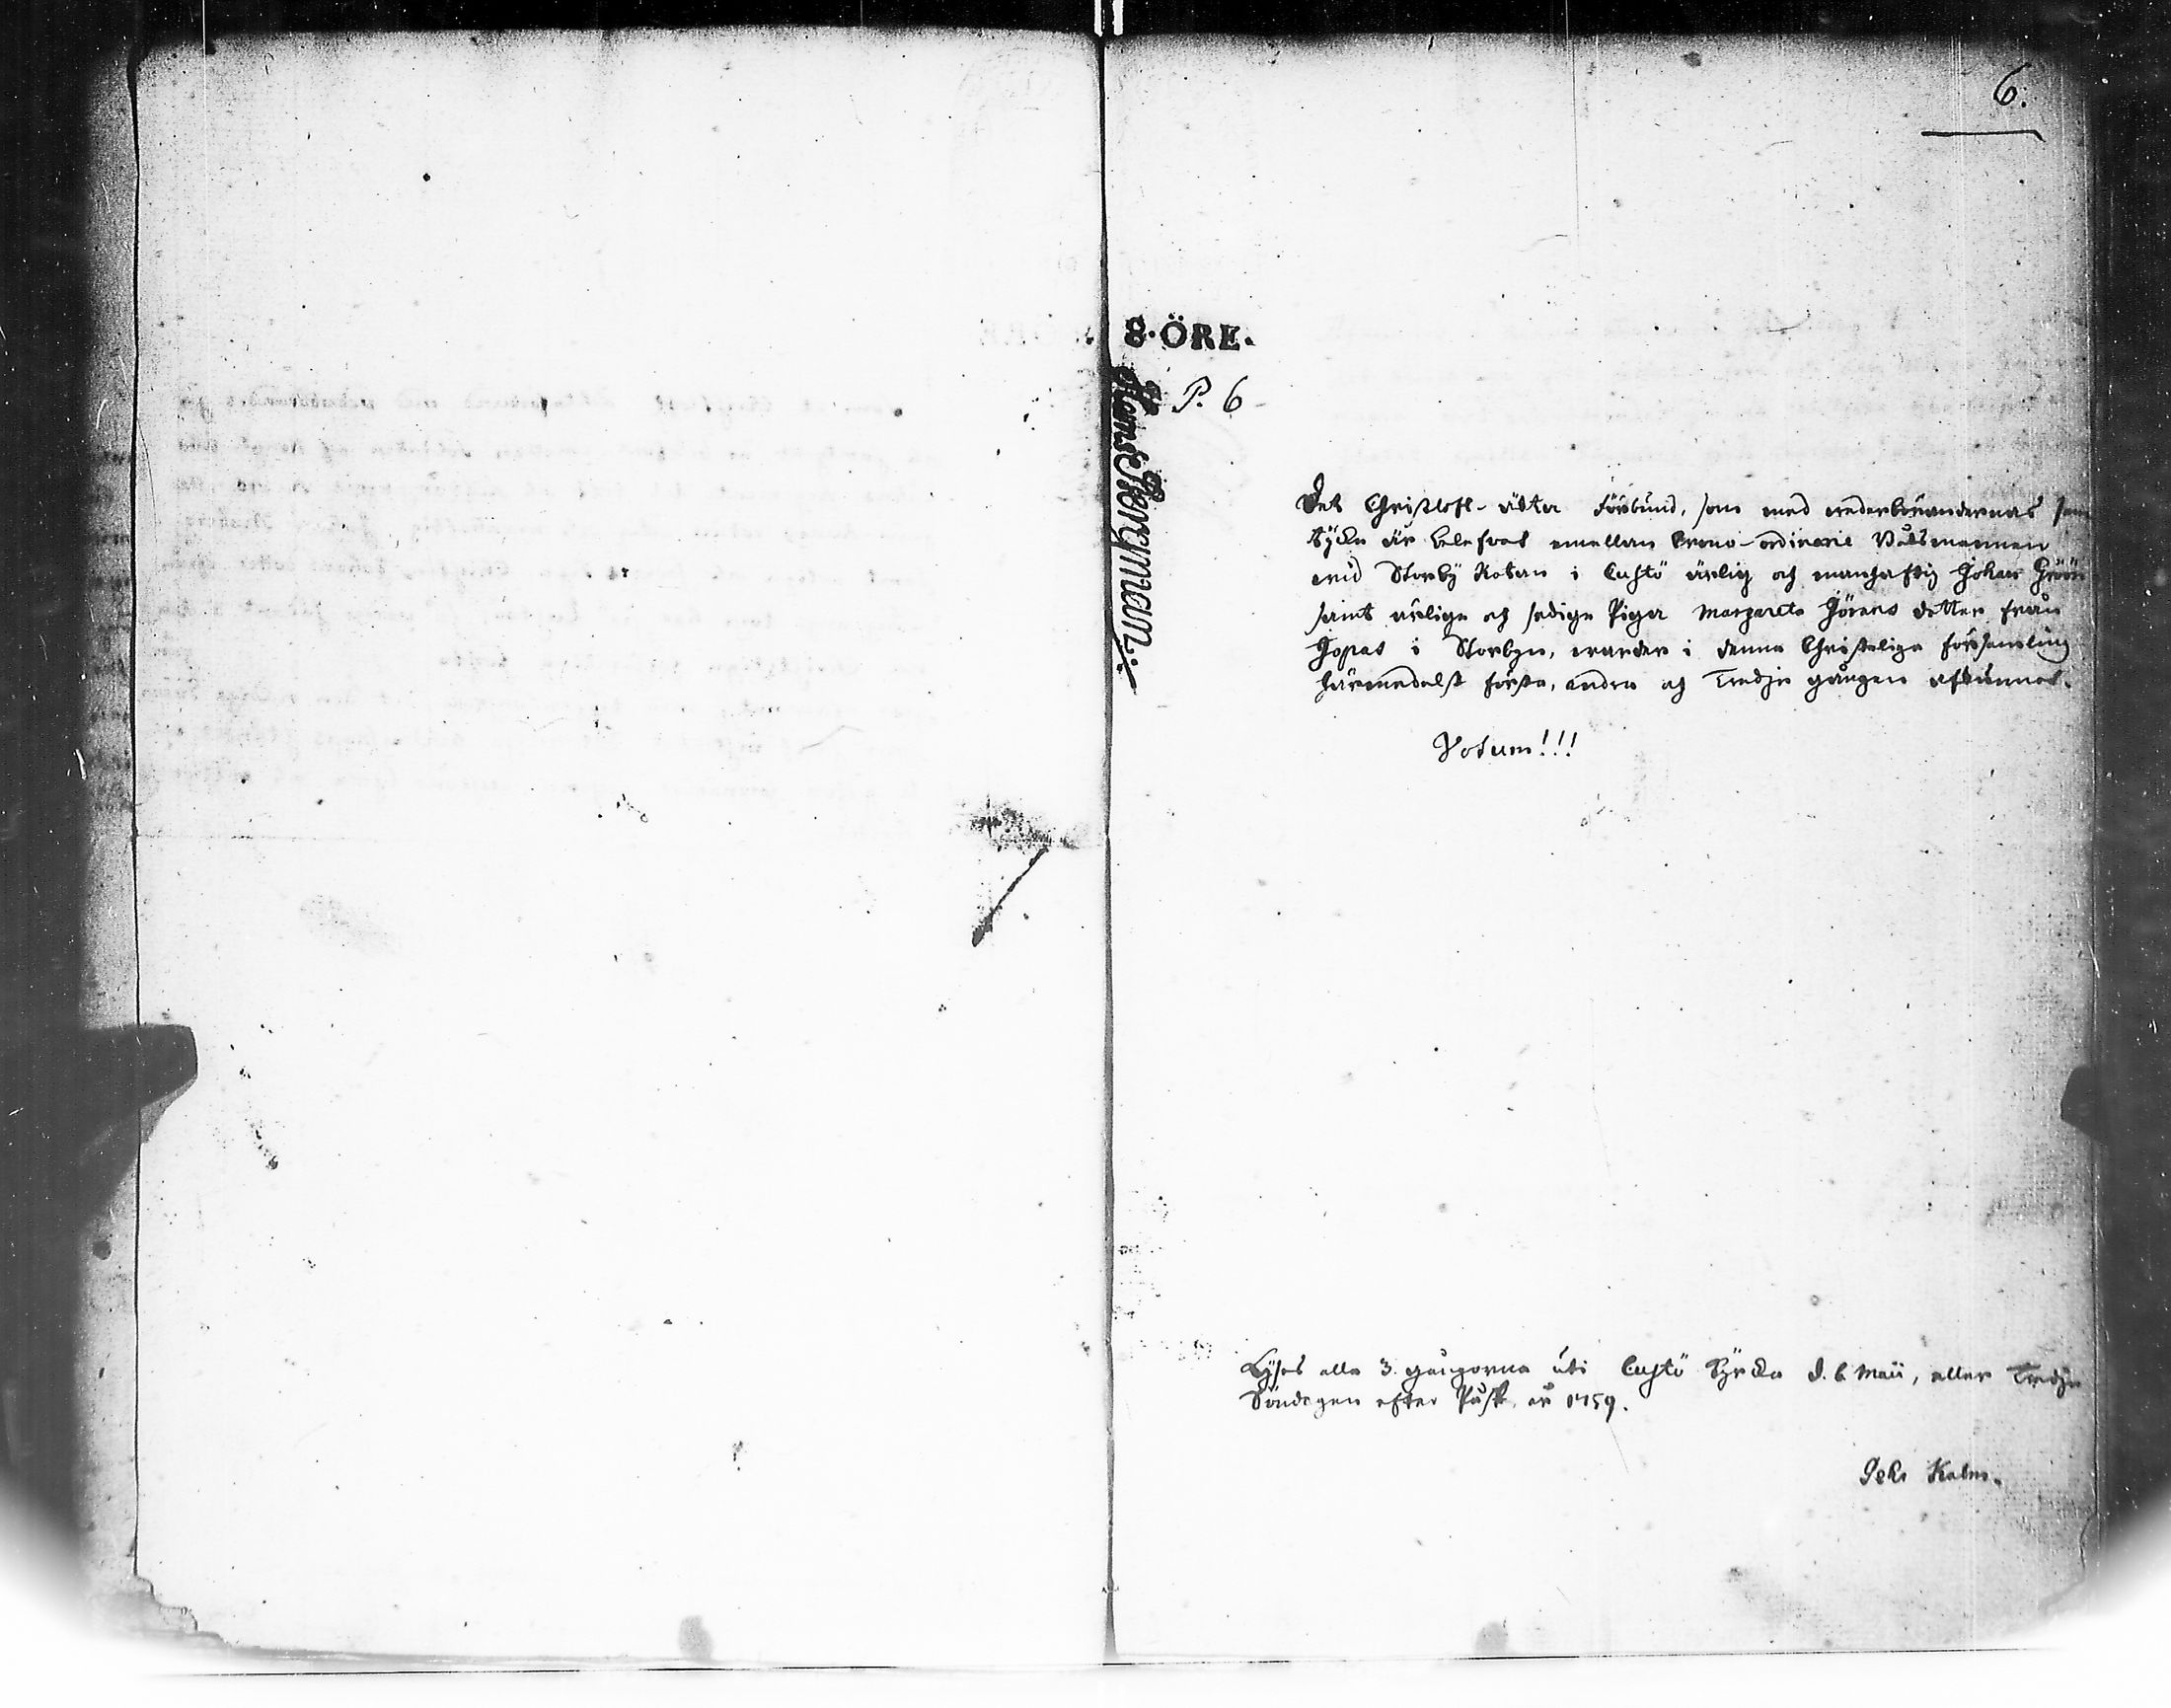 6.
8. ÖRE.
P. 6
Det Christloft- ächta Förbund, som med wederbörandernas sam
tÿcke är belefvat emellan Crono-ordinarie Båtsmannen
wid Storbÿ Rotan i Custö ärlig och manhaftig Johan Gröön
samt ärliga och sediga Pigan Margareta Jörans dotter från
Jopas i Storbyn, warder i denna Christeliga församling
härmedelst första, andra och Tredje gången afkunnat.
Votum!!!
Lÿses alla 3. gångorna uti Custö Kÿrcka d. 6 Maii, eller Tredje
Söndagen efter Påsk, år 1759.
Pehr Kalm.